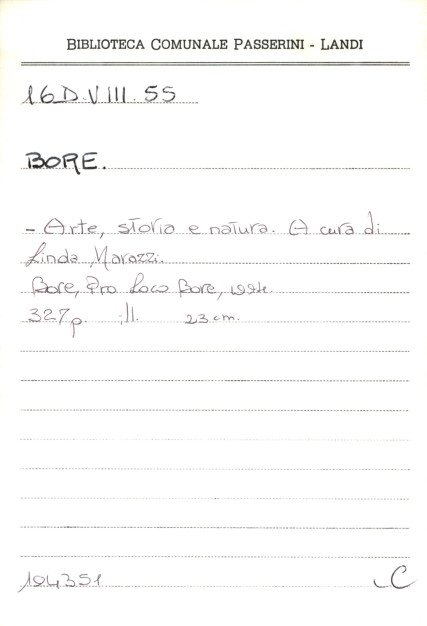 BIBLIOTECA COMUNALE PASSERINI - LANDI
16D.VIII.55
BORE.
- Arte, storia e natura. A cura di
Linda Marazzi.
Bore, Pro Loco Bore, 1994.
327p. ill. 23 cm.
104351 C